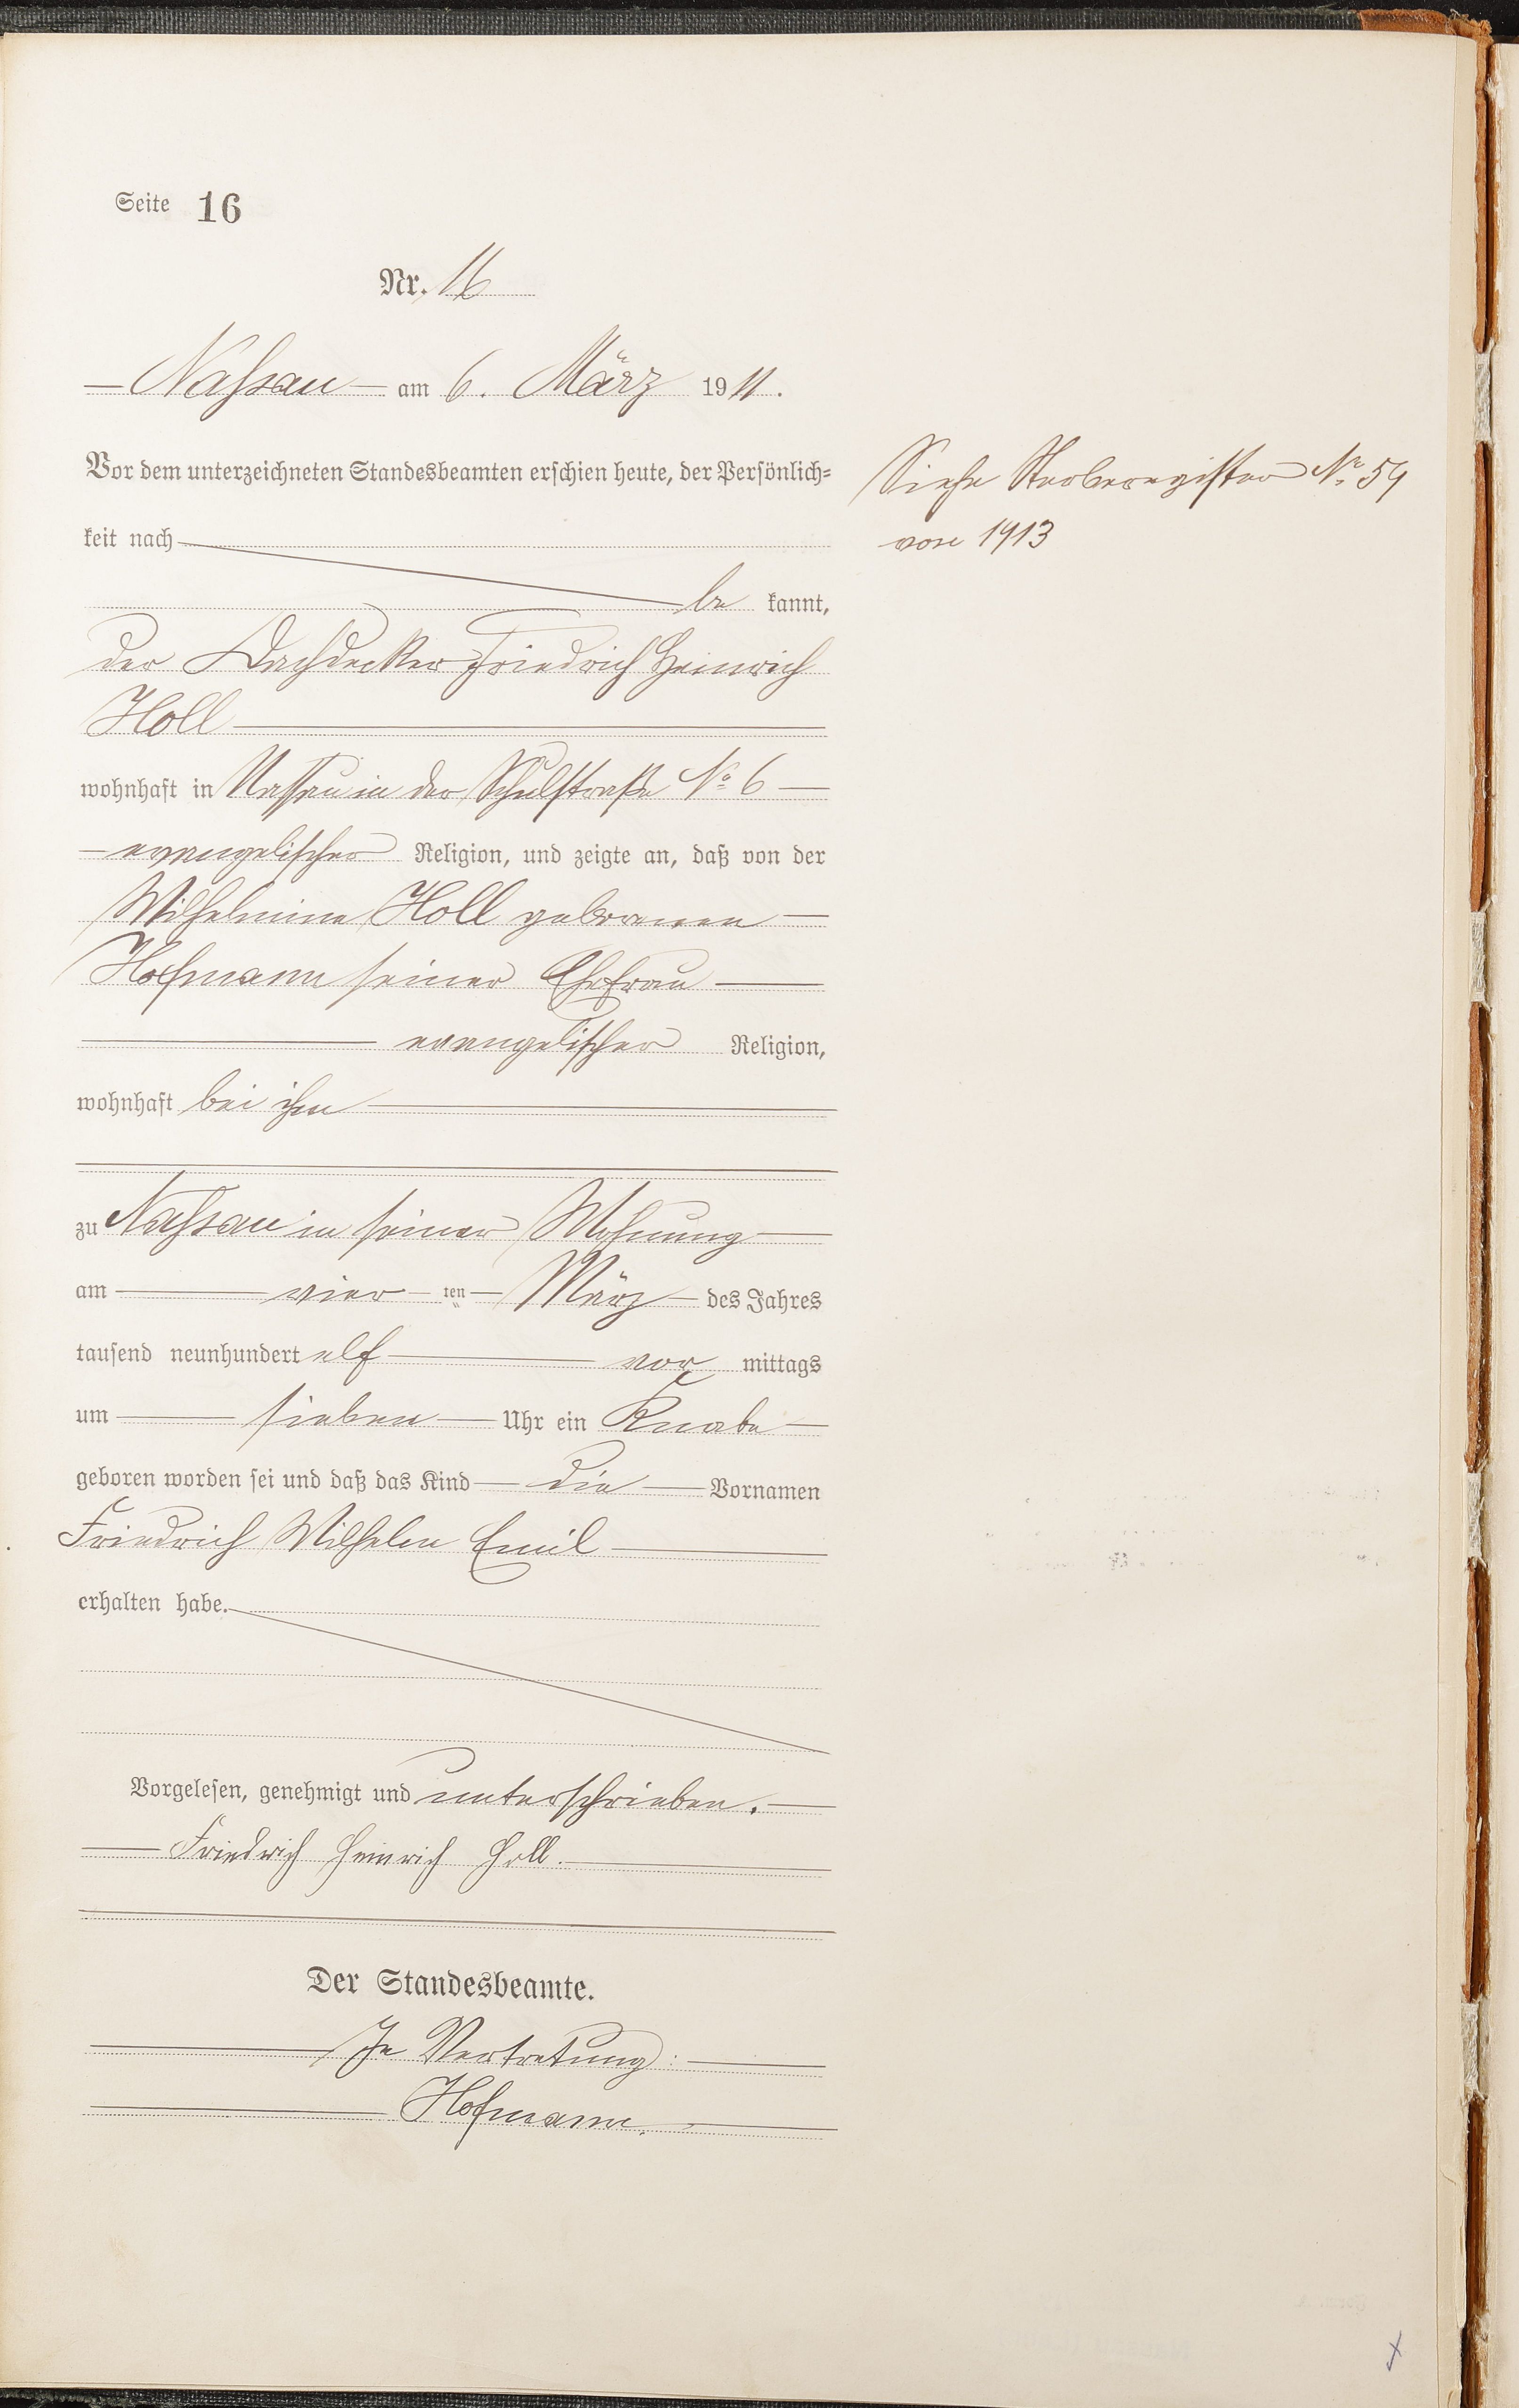 Seite 16
Nr. 16
Nassau am 6. März 1911.
Vor dem unterzeichneten Standesbeamten erschien heute, der Persönlich=
keit nach
be kannt,
der Dachdecker Friedrich Heinrich
Holl
wohnhaft in Nassau in der Schulstraße No 6
evangelischer Religion, und zeigte an, daß von der
Wilhelmine Holl geborenen
Hofmann seiner Ehefrau
evangelischer Religion,
wohnhaft bei ihm
zu Nassau in seiner Wohnung
am vier ten März des Jahres
tausend neunhundert elf vor mittags
um sieben Uhr ein Knabe
geboren worden sei und daß das Kind die Vornamen
Friedrich Wilhelm Emil
erhalten habe.
Vorgelesen, genehmigt und unterschrieben.
Friedrich Heinrich Holl.
Der Standesbeamte.
In Vertretung:
Hofmann.
Siehe Sterberegister No 54
von 1913